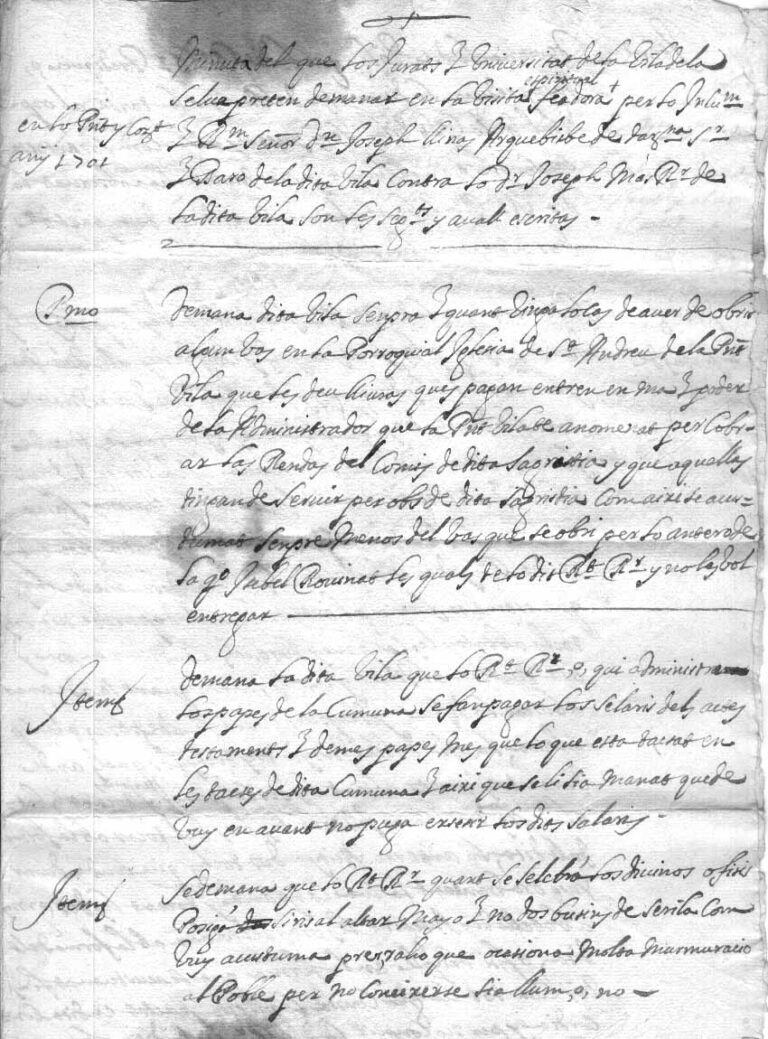 Minuta del que los Jurats y Universitat de la Vila de la
Selva preten demanar en la visita espiritual feadora per lo Illm
y Rm Señor Dr Joseph llinas Arquebisbe de Tarna Sr
y Baro de la dita Vila Contra lo dr Joseph Mas Rr de
la dita vila son les segts y avall escritas -
en lo
añy 1701
Pmo
demana dita Vila senpra y quant vinga lo cas de aver de obrir
algun vas en la Parroquial Iglesia de St Andreu de la Pnt
Vila que les deu lliuras ques pagan entren en ma y poder
de la Administrador que la Pnt vila te anomenat per Cobr-
ar las Rendas del Comis de dita Sagristia y que aquellas
tingan de servir per obs de dita Sagristia Com aixi se acus-
tumat senpre Menos del vas que se obri per lo entero de
la qo Isabel Rovirat les quals te lo dit Rt Rr y no las vol
entregar
Item
demana la dita Vila que lo Rt Rr, o, qui administra
los papes de la Cumuna se fan pagar los selaris dels actes
testaments y demes papes Mes que lo que esta tactat en
les tactes de dita Cumuna y aixi que seli sia Manat que de
vuy en avant no puga exsigir los dits salaris -
Item
Se demana que lo Rt Rr quant se selebra los divinos ofisis
Posia siris al altar Mayo y no dos busins de serila Com
vuy acustuma pres, raho que ocasiona Molta Murmuracio
al Poble per no Coneixerse sia llum, o, no -